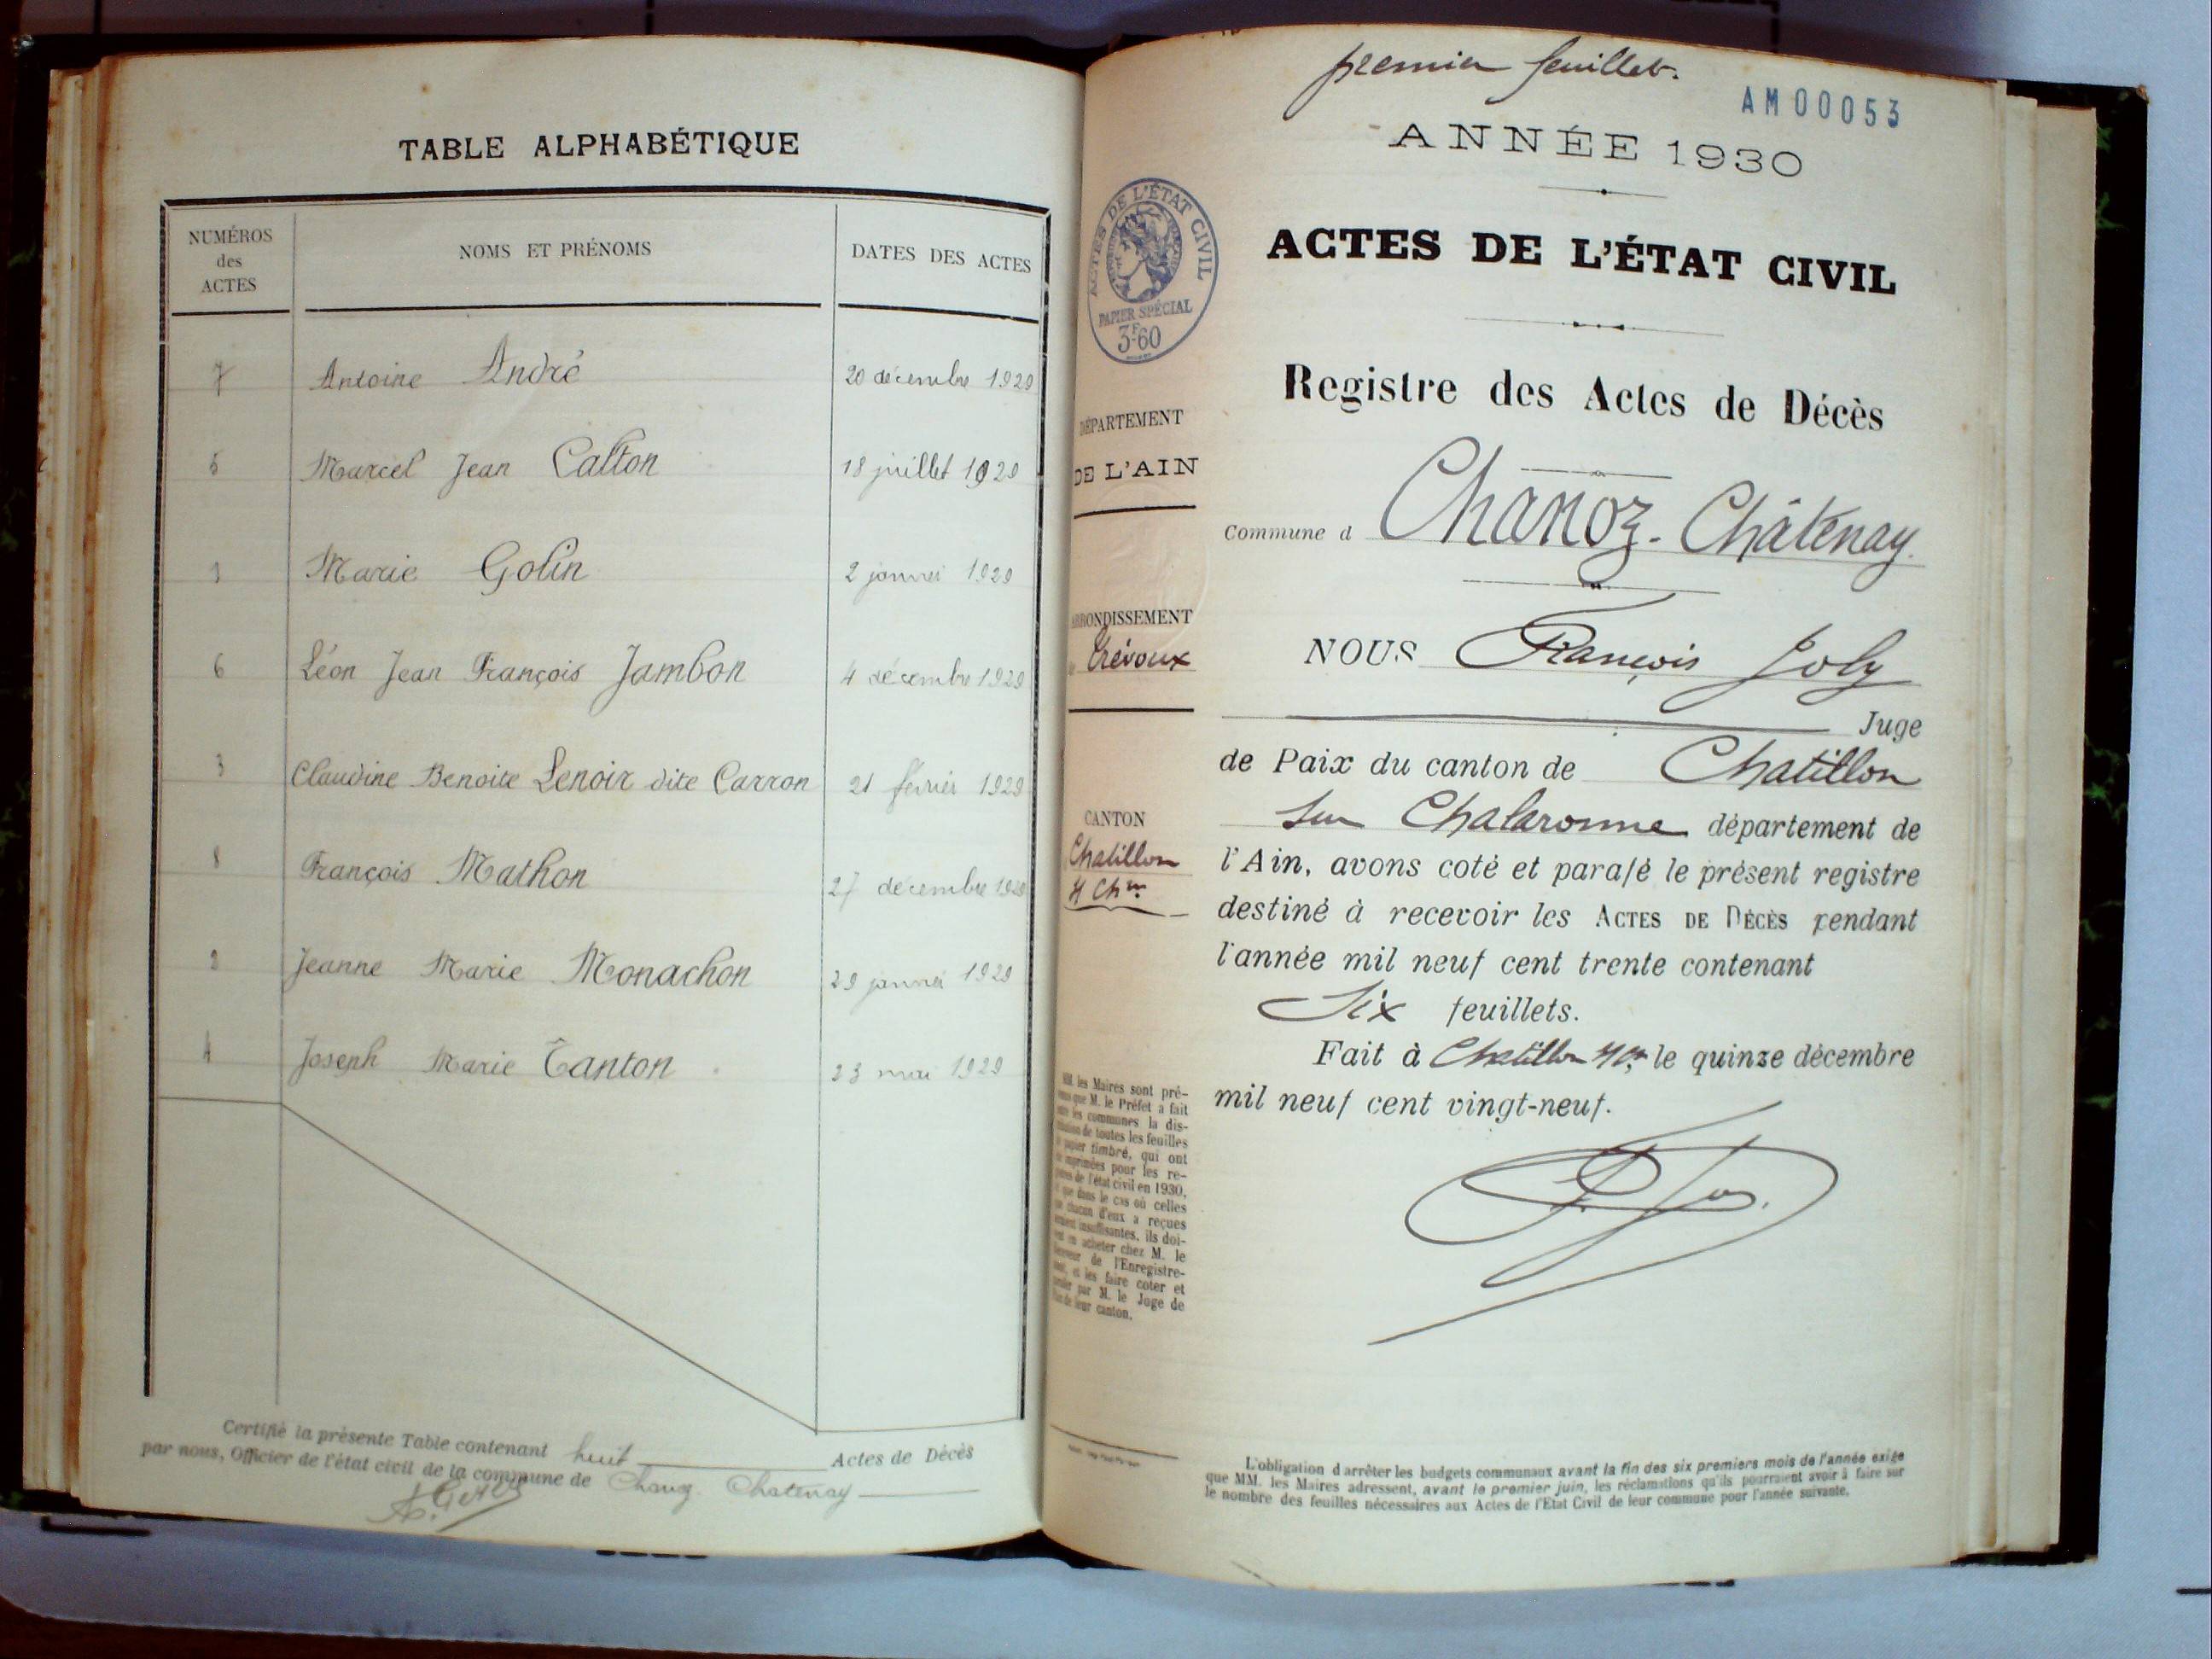 TABLE ALPHABÉTIQUE
NUMÉROS des ACTES NOMS ET PRÉNOMS DATES DES ACTES
7 Antoine André 20 décembre 1929
5 Marcel Jean Calton 18 juillet 1929
1 Marie Golin 2 janvier 1929
6 Léon Jean François Jambon 4 décembre 1929
3 Claudine Benoite Lenoir dite Carron 21 février 1929
8 François Mathon 27 décembre 1929
2 Jeanne Marie Monachon 29 janvier 1929
4 Joseph Marie Tanton 23 mai 1929
Certifié la présente Table contenant huit Actes de Décès
par nous, Officier de l'état civil de la commune de Chanoz Chatenay
premier feuillet.
AM00053
ANNÉE 1930
ACTES DE L'ÉTAT CIVIL
PAPIER SPÉCIAL
3F60
ACTES DE L'ÉTAT CIVIL
Registre des Actes de Décès
DÉPARTEMENT
DE L'AIN
Commune d Chanoz-Châtenay.
ARRONDISSEMENT
de Trévoux
NOUS François Joly
Juge
de Paix du canton de Chatillon
sur Chalaronne département de
CANTON
Chatillon
s/ Chne
l'Ain, avons coté et parafé le présent registre
destiné à recevoir les ACTES DE DÉCÈS pendant
l'année mil neuf cent trente contenant
Six feuillets.
Fait à Chatillon s/ Ch, le quinze décembre
mil neuf cent vingt-neuf.
MM. les Maires sont pré-
venus que M. le Préfet a fait
entre les communes la dis-
tribution de toutes les feuilles
de papier timbré, qui ont
été imprimées pour les re-
gistres de l'état civil en 1930,
et que dans le cas où celles
que chacun d'eux a reçues
seraient insuffisantes, ils doi-
vent en acheter chez M. le
Receveur de l'Enregistre-
ment, et les faire coter et
parafer par M. le Juge de
Paix de leur canton.
L'obligation d'arrêter les budgets communaux avant la fin des six premiers mois de l'année exige
que MM. les Maires adressent, avant le premier juin, les réclamations qu'ils pourraient avoir à faire sur
le nombre des feuilles nécessaires aux Actes de l'Etat Civil de leur commune pour l'année suivante.